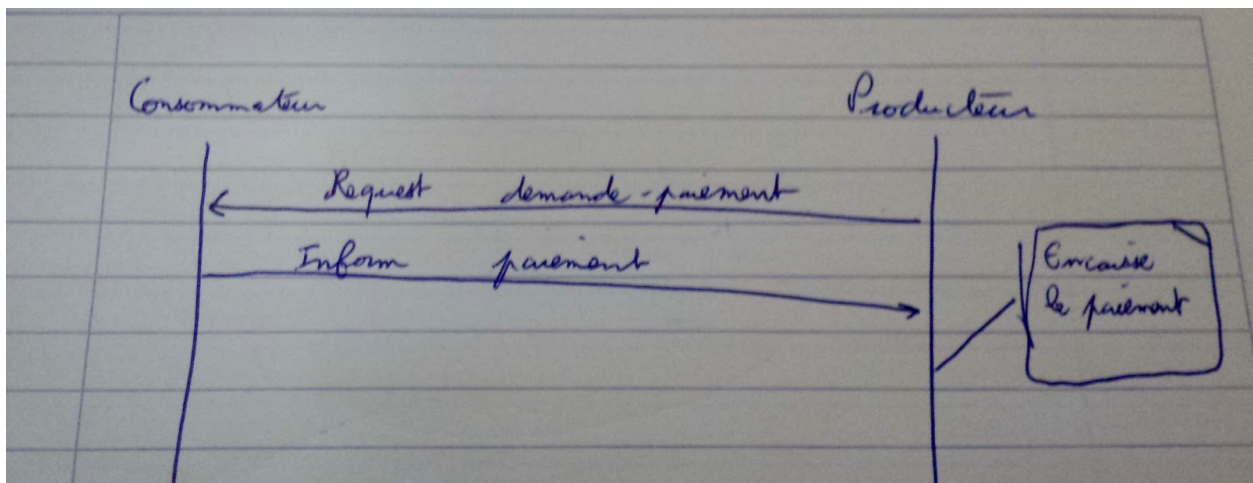 Consommateur
Producteur
Request demande-paiement
Inform paiement
Encaisse
le paiement